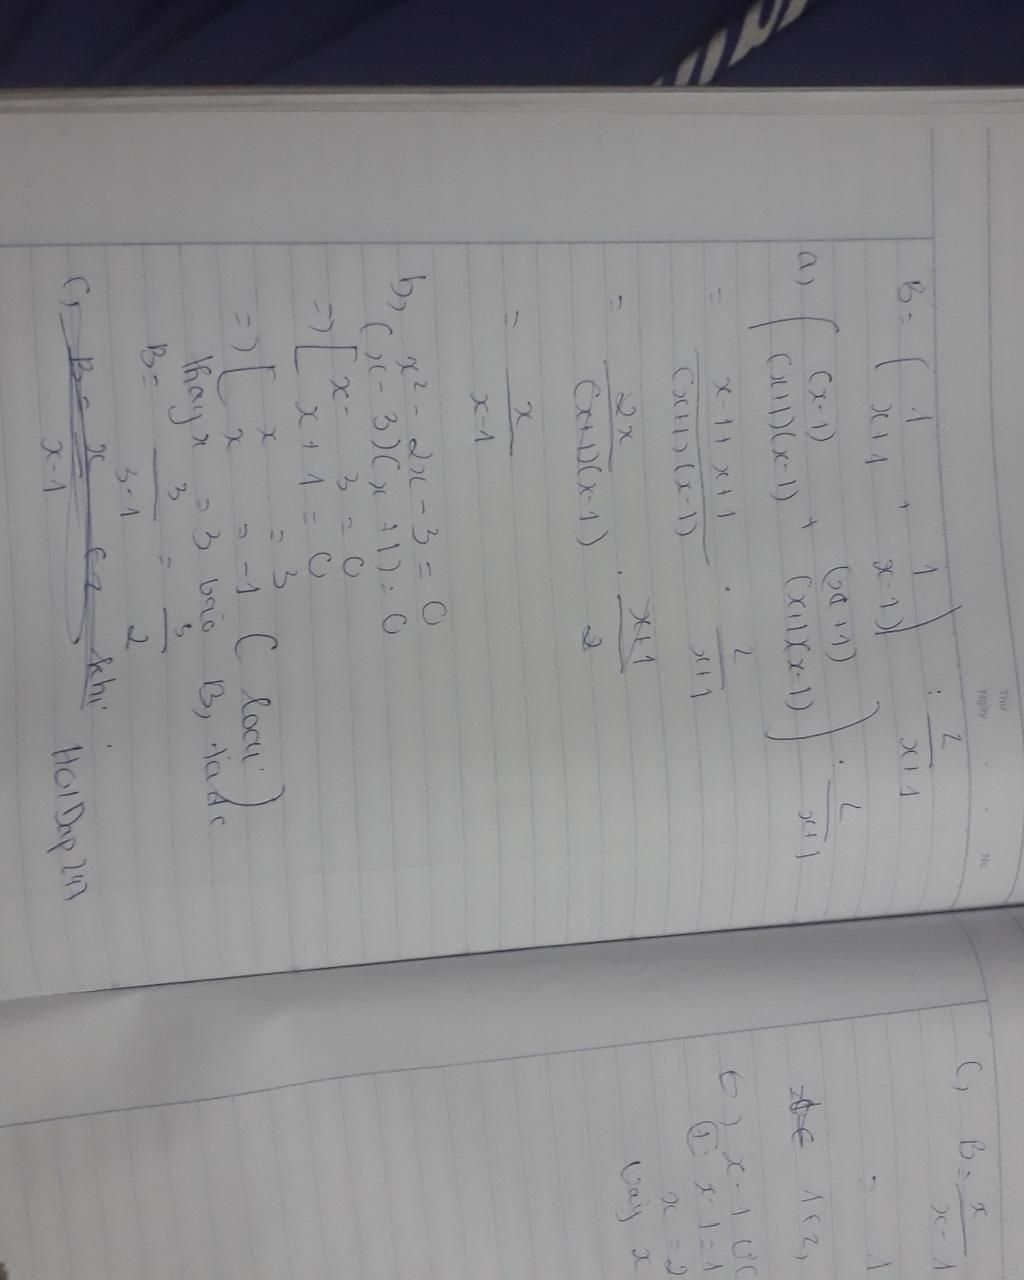 Thứ
Ngày
No.
B = ( 1/(x+1) + 1/(x-1) ) : 2/(x+1)
a, ( (x-1)/((x+1)(x-1)) + (x+1)/((x+1)(x-1)) ) : 2/(x+1)
= (x-1+x+1)/((x+1)(x-1)) : 2/(x+1)
= 2x/((x+1)(x-1)) . (x+1)/2
= x/(x-1)
b, x² - 2x - 3 = 0
(x-3)(x+1) = 0
=) [ x - 3 = 0
x + 1 = 0
=) [ x = 3
x = -1 ( loại )
thay x = 3 vào B, ta đc
B = 3/(3-1) = 3/2
C, B = x/(x-1) ∈ Z khi
HoiDap247
C, B = x/(x-1)
= 1
1 ∈ Z,
x - 1
x - 1 = 1
x = 2
Vậy x